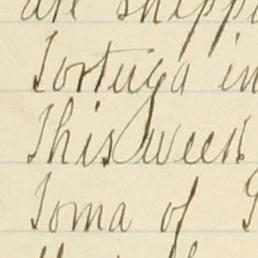 are shipp
Tortuga in
This week
Toma of